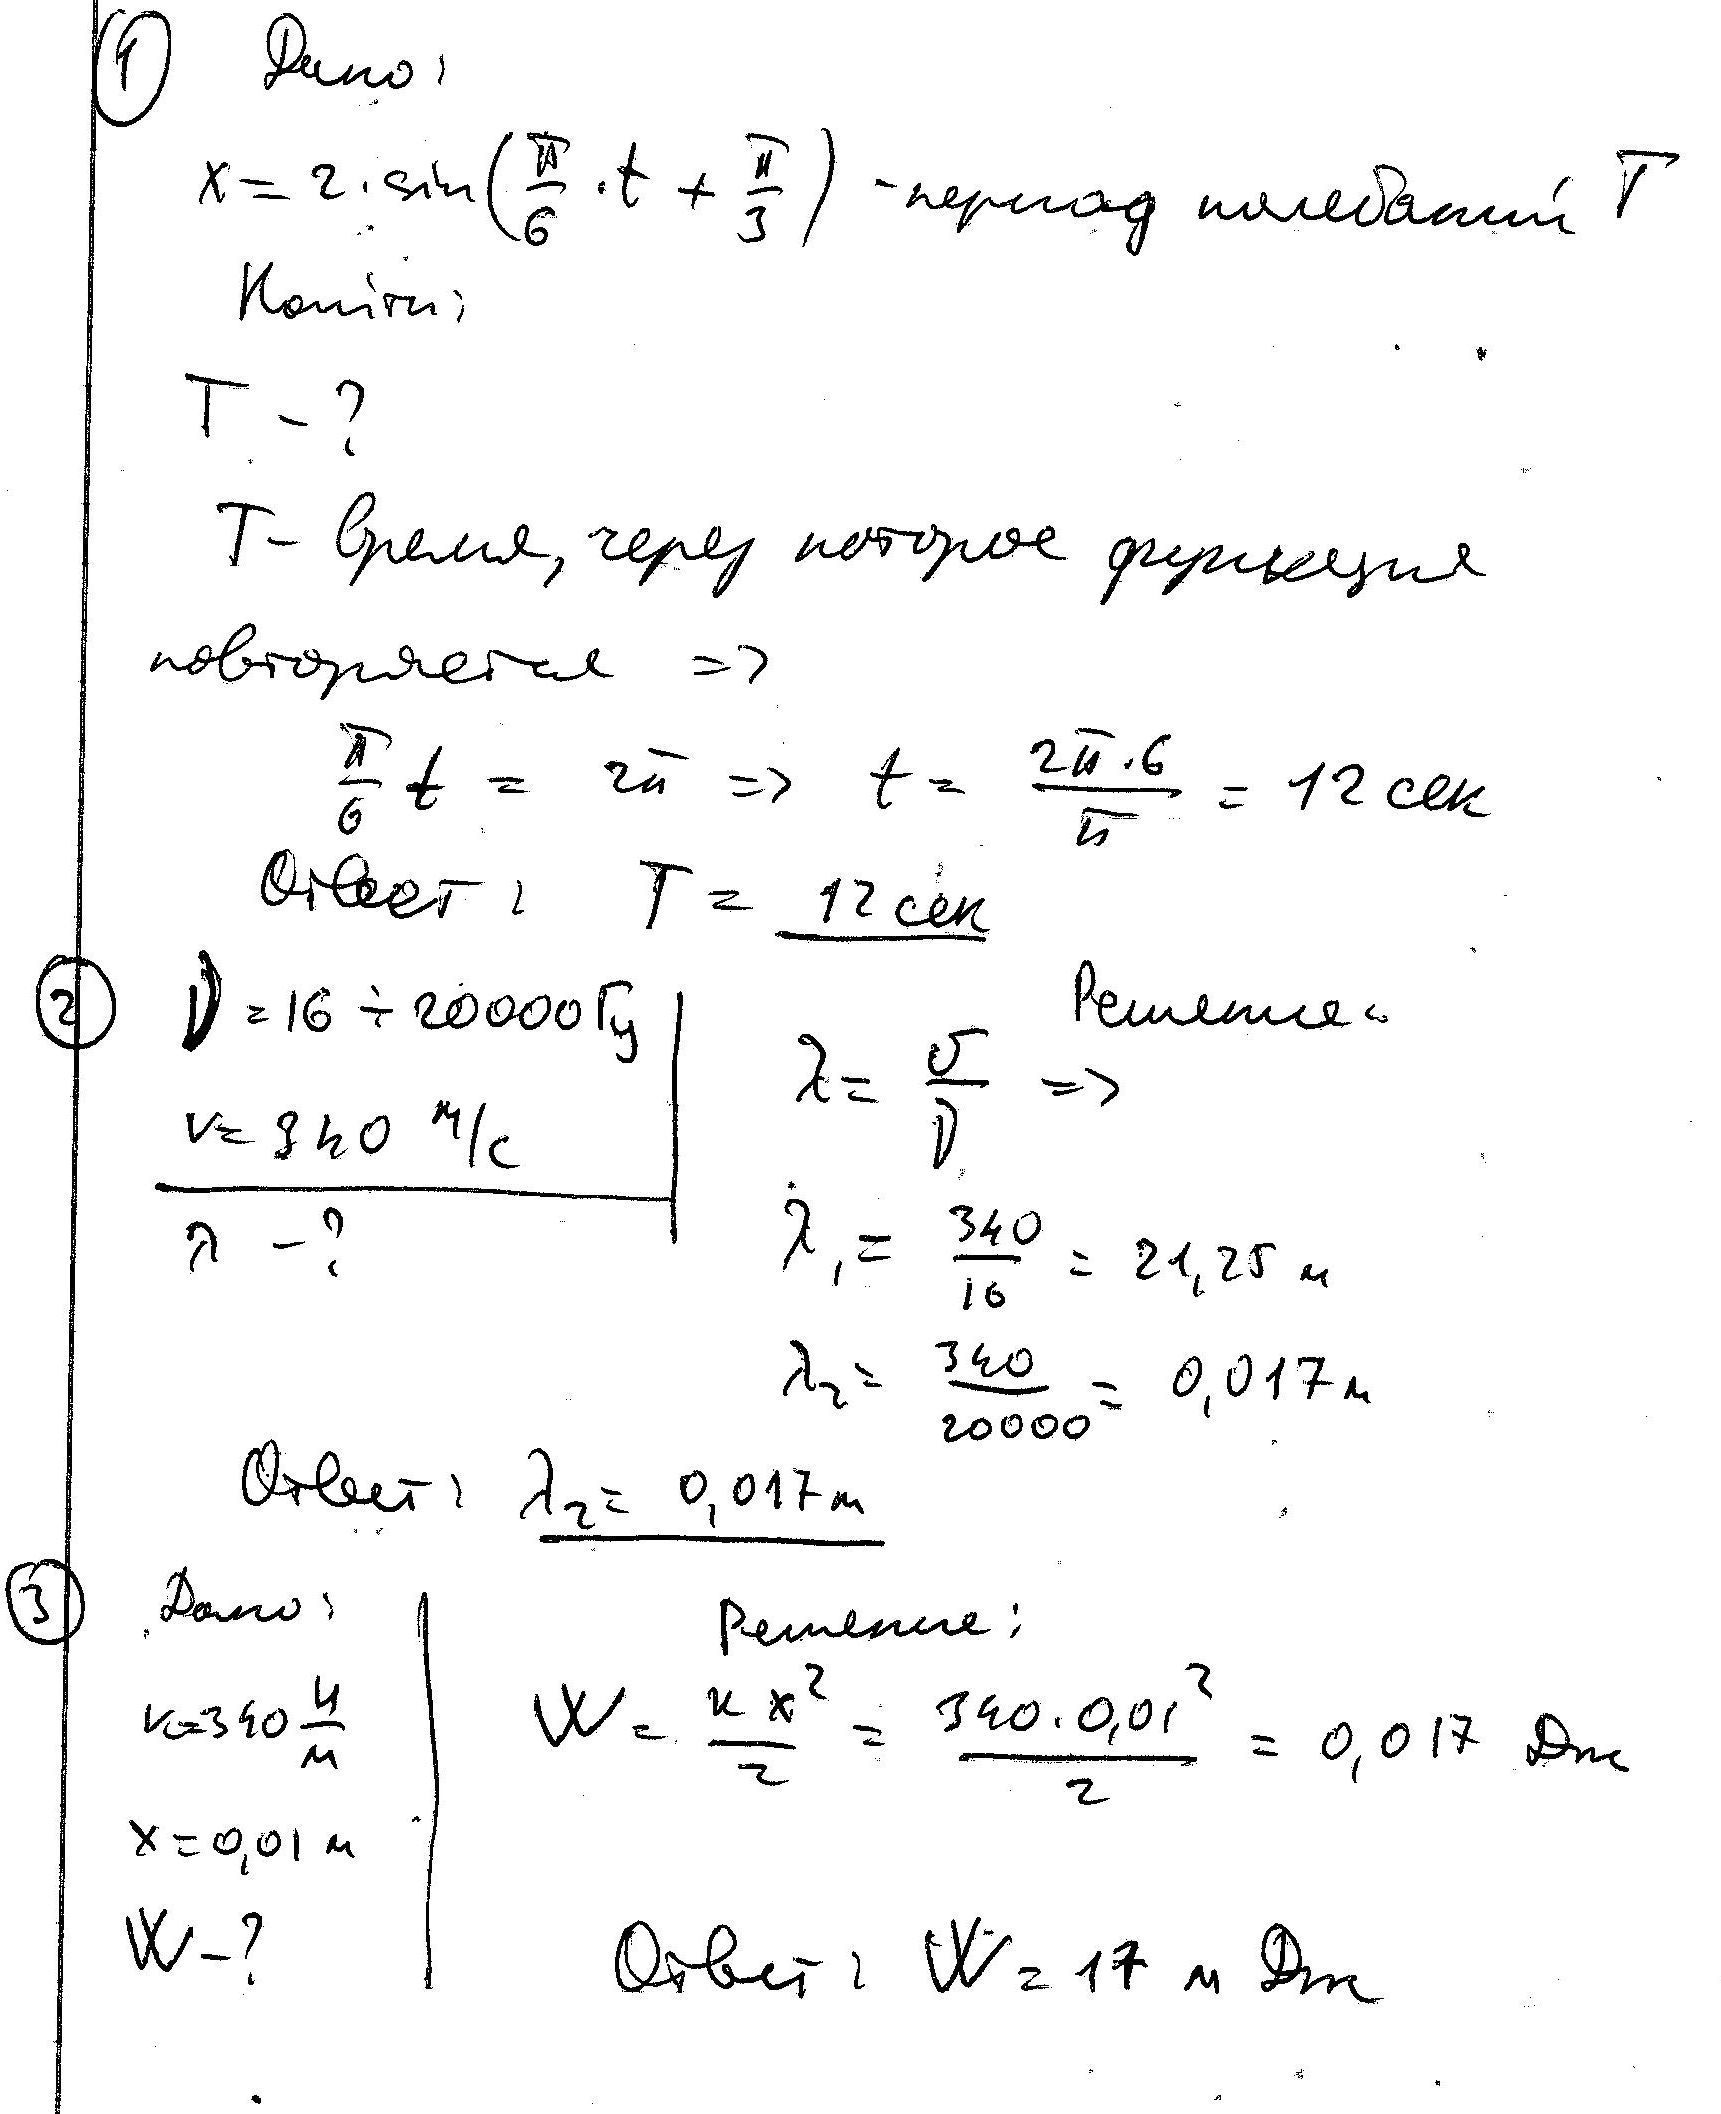 1 Дано:
x = 2 · sin(π/6 · t + π/3) - период колебаний T
Найти:
T - ?
T - время, через которое функция
повторяется =>
π/6 t = 2π => t = 2π·6/π = 12 сек
Ответ: T = 12 сек
2 ν = 16 ÷ 20000 Гц
Решение:
v = 340 м/с
λ = υ/ν =>
λ - ?
λ₁ = 340/16 = 21,25 м
λ₂ = 340/20000 = 0,017 м
Ответ: λ₂ = 0,017 м
3 Дано:
Решение:
к = 340 Н/м
W = кx²/2 = 340·0,01²/2 = 0,017 Дж
x = 0,01 м
W - ?
Ответ: W = 17 м Дж